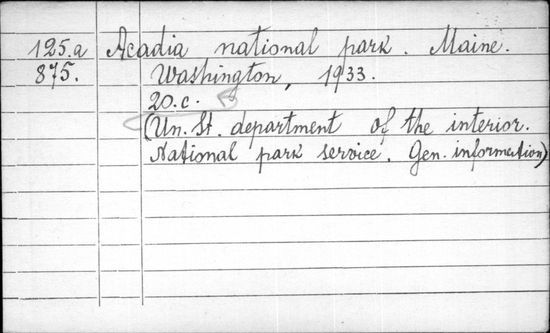 125.a Acadia national park. Maine.
875. Washington, 1933.
20.c.
(Un. St. department of the interior.
National park service. Gen. information)